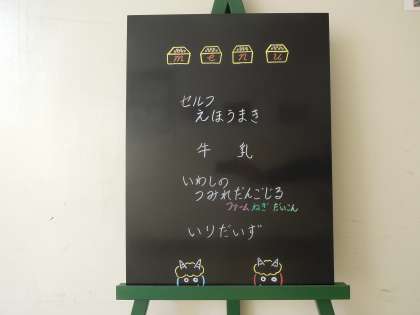 menu
セルフ
えほうまき
牛乳
いわしの
つみれだんごじる
ファームねぎ だいこん
いりだいず